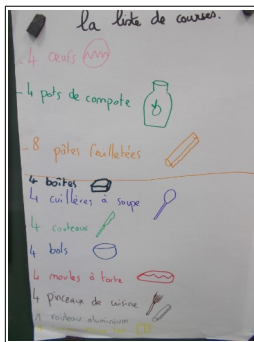 la liste de courses.
- 4 œufs
- 4 pots de compote
- 8 pâtes feuilletées
4 boîtes
4 cuillères à soupe
4 couteaux
4 bols
4 moules à tarte
4 pinceaux de cuisine
1 rouleau aluminium